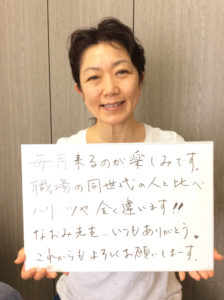 毎月来るのが楽しみです。
職場の同世代の人と比べ
ハリ・ツヤ 全く違います!!
なおみ先生…いつもありがとう。
これからもよろしくお願いしまーす。